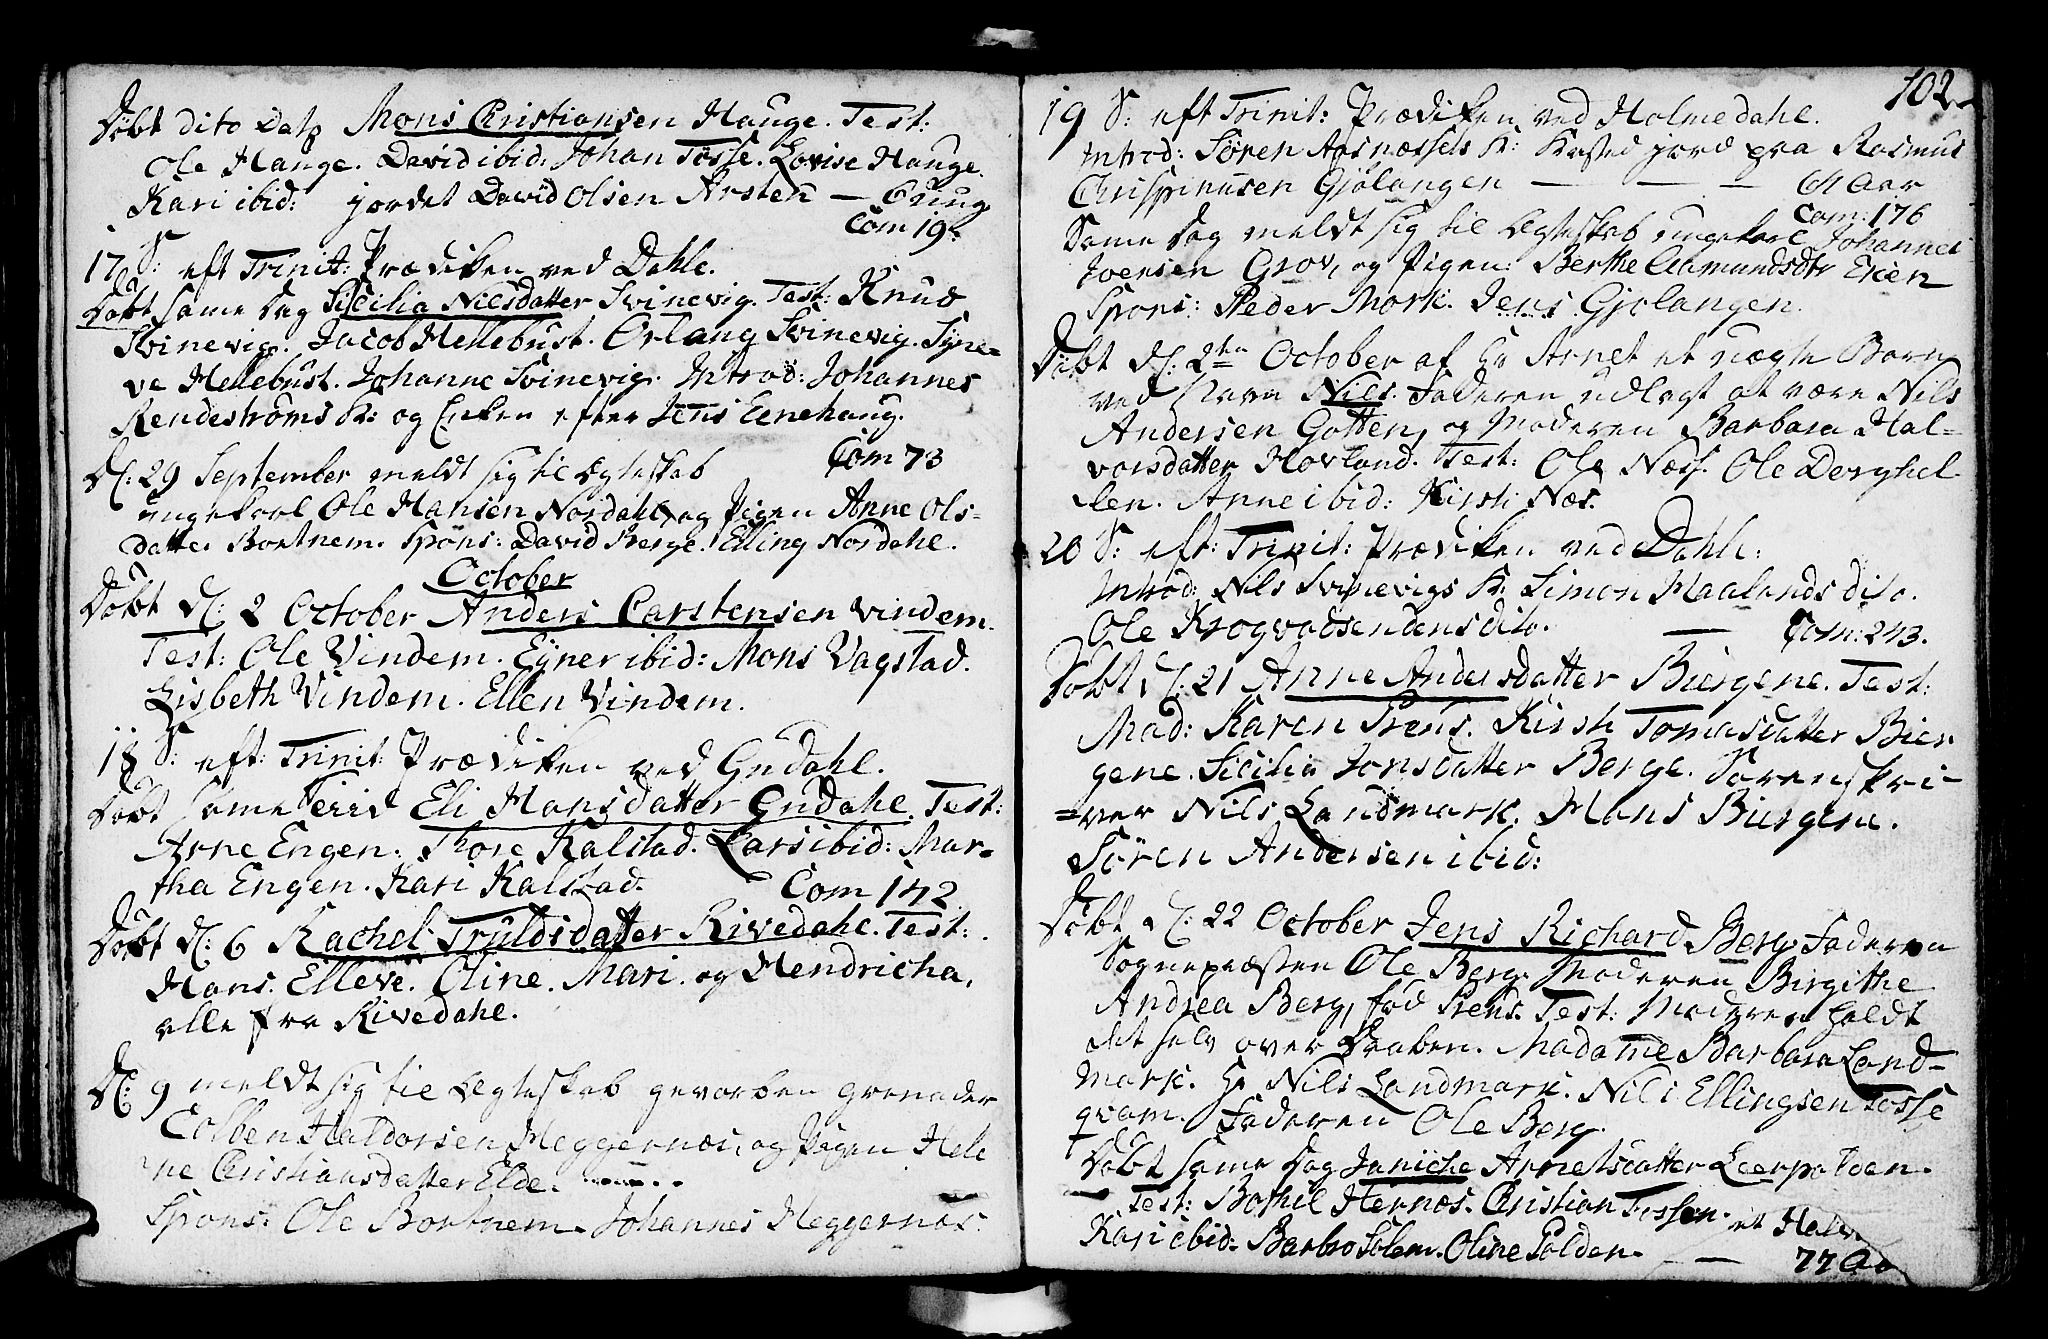 Døbt dito Dato Mons Christiansen Hauge. Test:
Ole Hauge. David ibid: Johan Tøsse. Lovise Hauge.
Kari ibid: jordet David Olsen Arsten —
Com 19.
17 S: eft Trinit: Prædiken ved Dahle.
Døbt same Dag Sicilia Nilsdatter Svinevig. Test: Knud
Svinevig. Jacob Hellebust. Erlang Svinevig. Syne-
ve Hellebust. Johanne Svinevig. Introd: Johannes
Rendestrøms K: og Enken efter Jens Eenehaug.
D: 29 September meldt sig til Egteskab Com 73
ungekarl Ole Hansen Nordahl, og Pigen Anne Ols-
datter Bortnem. Spons: David Berge. Elling Nordahl.
October
Døbt d: 2 October Anders Carstensen Vindem.
Test: Ole Vindem. Eyner ibid: Mons Vagstad.
Lisbeth Vindem. Ellen Vindem.
18 S: eft: Trinit: Prædiken ved Gudahl.
Døbt same Eli Hansdatter Gudahl. Test:
Arne Engen. Thore Kalstad. Lars ibid: Mar-
tha Engen. Kari Kalstad. Com 142
Døbt d: 6 Rachel Truldsdatter Rivedahl. Test:
Hans. Elleve. Oline. Mari. og Hendricha,
alle fra Rivedahl.
D: 9 meldt sig til Egteskab gevorben grenader
Colben Haldorsen Heggernæs, og Pigen Hele
ne Christiansdatter Elde.
Spons: Ole Bortnem. Johannes Heggernæs.
102
19 S: eft Trinit: Prædiken ved Holmedahl.
Introd: Søren Aasnæssets K: Kasted jord paa Rasmus
Chrispinusen Gjølangen — — — Aar
Com: 176
Same Dag meldt sig til Egteskab ungekarl Johannes
Joensen Grov, og Pigen: Berthe Amundsdtr Eien
Spons: Peder Mork. Jens Gjølangen.
Døbt d: 2den October af Hr Arnet et uægte Barn
ved Navn Nils. Faderen udlagt at være Nils
Andersen Gotten, og Moderen Barbara Hal-
vorsdatter Hovland. Test: Ole Næss. Ole Derghel
len. Anne ibid: Kirsti Næs.
20 S: eft: Trinit: Prædiken ved Dahle:
Introd: Nils Svinevigs K: Simon Maalands dito.
Ole Krogvadsendens dito. — Com: 243.
Døbt d: 21 Anne Andersdatter Biergene. Test:
Mad: Karen Prens. Kirsti Tomasdatter Bier
gene. Sicilia Jonsdatter Berge. Sorenskri-
=ver Nils Landmark. Hans Biergene.
Søren Andersen ibid:
Døbt d: 22 October Jens Richard Berg. Faderen
Sognepræsten Ole Berg. Moderen Birgithe
Andrea Berg, fød Prens. Test: Moderen holdt
det selv over Daaben. Madame Barbara Land-
mark. Hr Nils Landmark. Nils Ellingsen Tosse
qvam. Faderen Ole Berg.
Døbt same Dag Janiche Arnetsdatter Leerpolden.
Test: Bothil Hernæs. Christian Tossen.
Kari ibid: Barbro Solem. Oline Polden. —
77